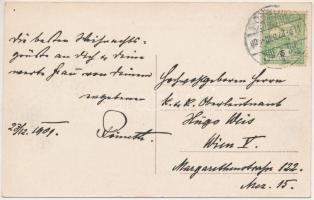 die besten Weihnachts-
grüße an dich & deine
werte Frau von deinem
ergebenen
23/12. 1909.
Hochwohlgeboren Herrn
K. u. K. Oberleutnant
Hugo Weis
Wien V.
Margarethenstraße 122.
15.